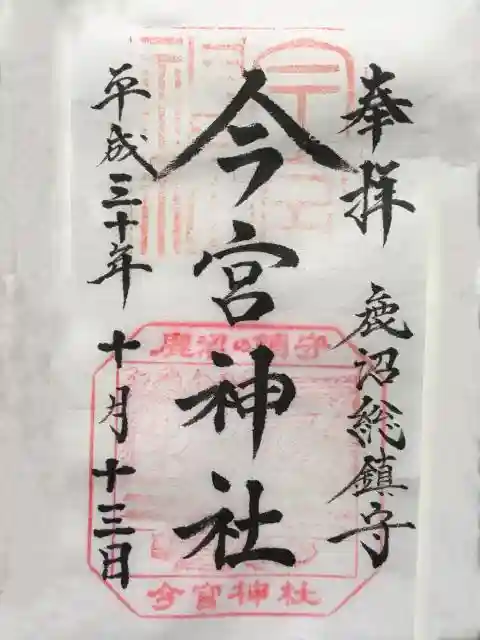 奉拝 鹿沼総鎮守
今宮神社
平成三十年 十月十三日
鹿沼の鎮守
今宮神社